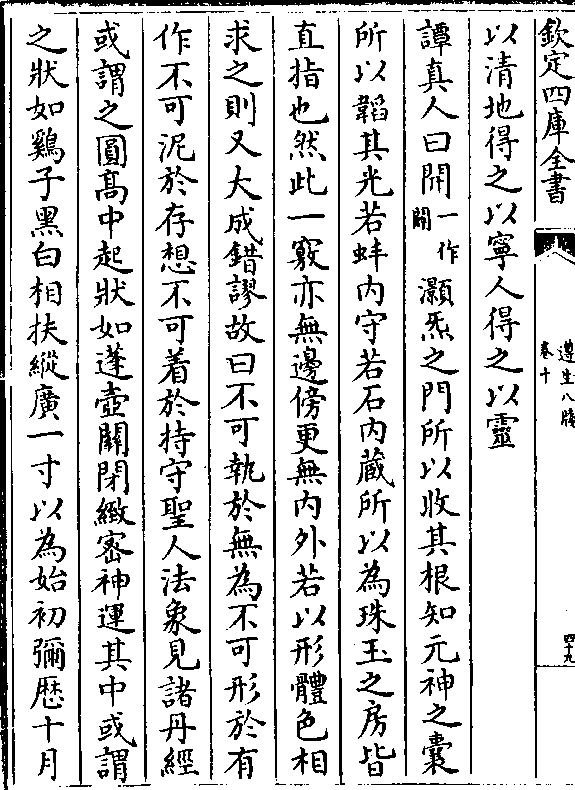 欽定四庫全書
遵生八牋
卷十
四十九
以清地得之以寧人得之以靈
譚真人曰開一作闢灝炁之門所以收其根知元神之囊
所以韜其光若蚌内守若石内藏所以為珠玉之房皆
直指也然此一竅亦無邊傍更無内外若以形體色相
求之則又大成錯謬故曰不可執於無為不可形於有
作不可泥於存想不可着於持守聖人法象見諸丹經
或謂之圓髙中起狀如蓬壺關閉緻宻神運其中或謂
之狀如鷄子黒白相扶縱廣一寸以為始初彌歴十月